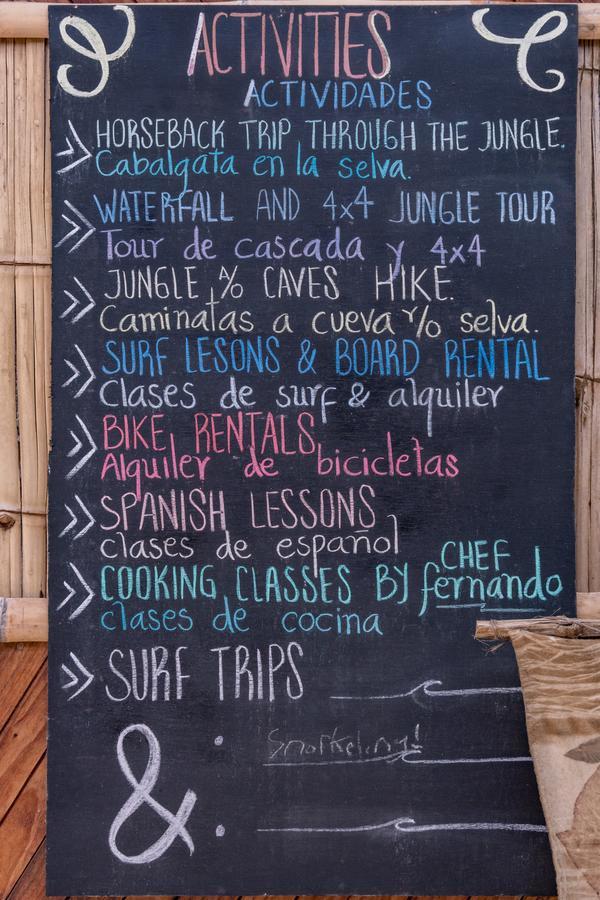 ACTIVITIES
ACTIVIDADES
HORSEBACK TRIP THROUGH THE JUNGLE.
Cabalgata en la selva.
WATERFALL AND 4x4 JUNGLE TOUR
Tour de cascada y 4x4
JUNGLE %  CAVES HIKE.
Caminatas a cueva y/o selva.
SURF LESONS & BOARD RENTAL
Clases de surf & alquiler
BIKE RENTALS
Alquiler de bicicletas
SPANISH LESSONS
clases de español
COOKING CLASSES BY CHEF fernando
clases de cocina
SURF TRIPS
Snorkeling!
&: